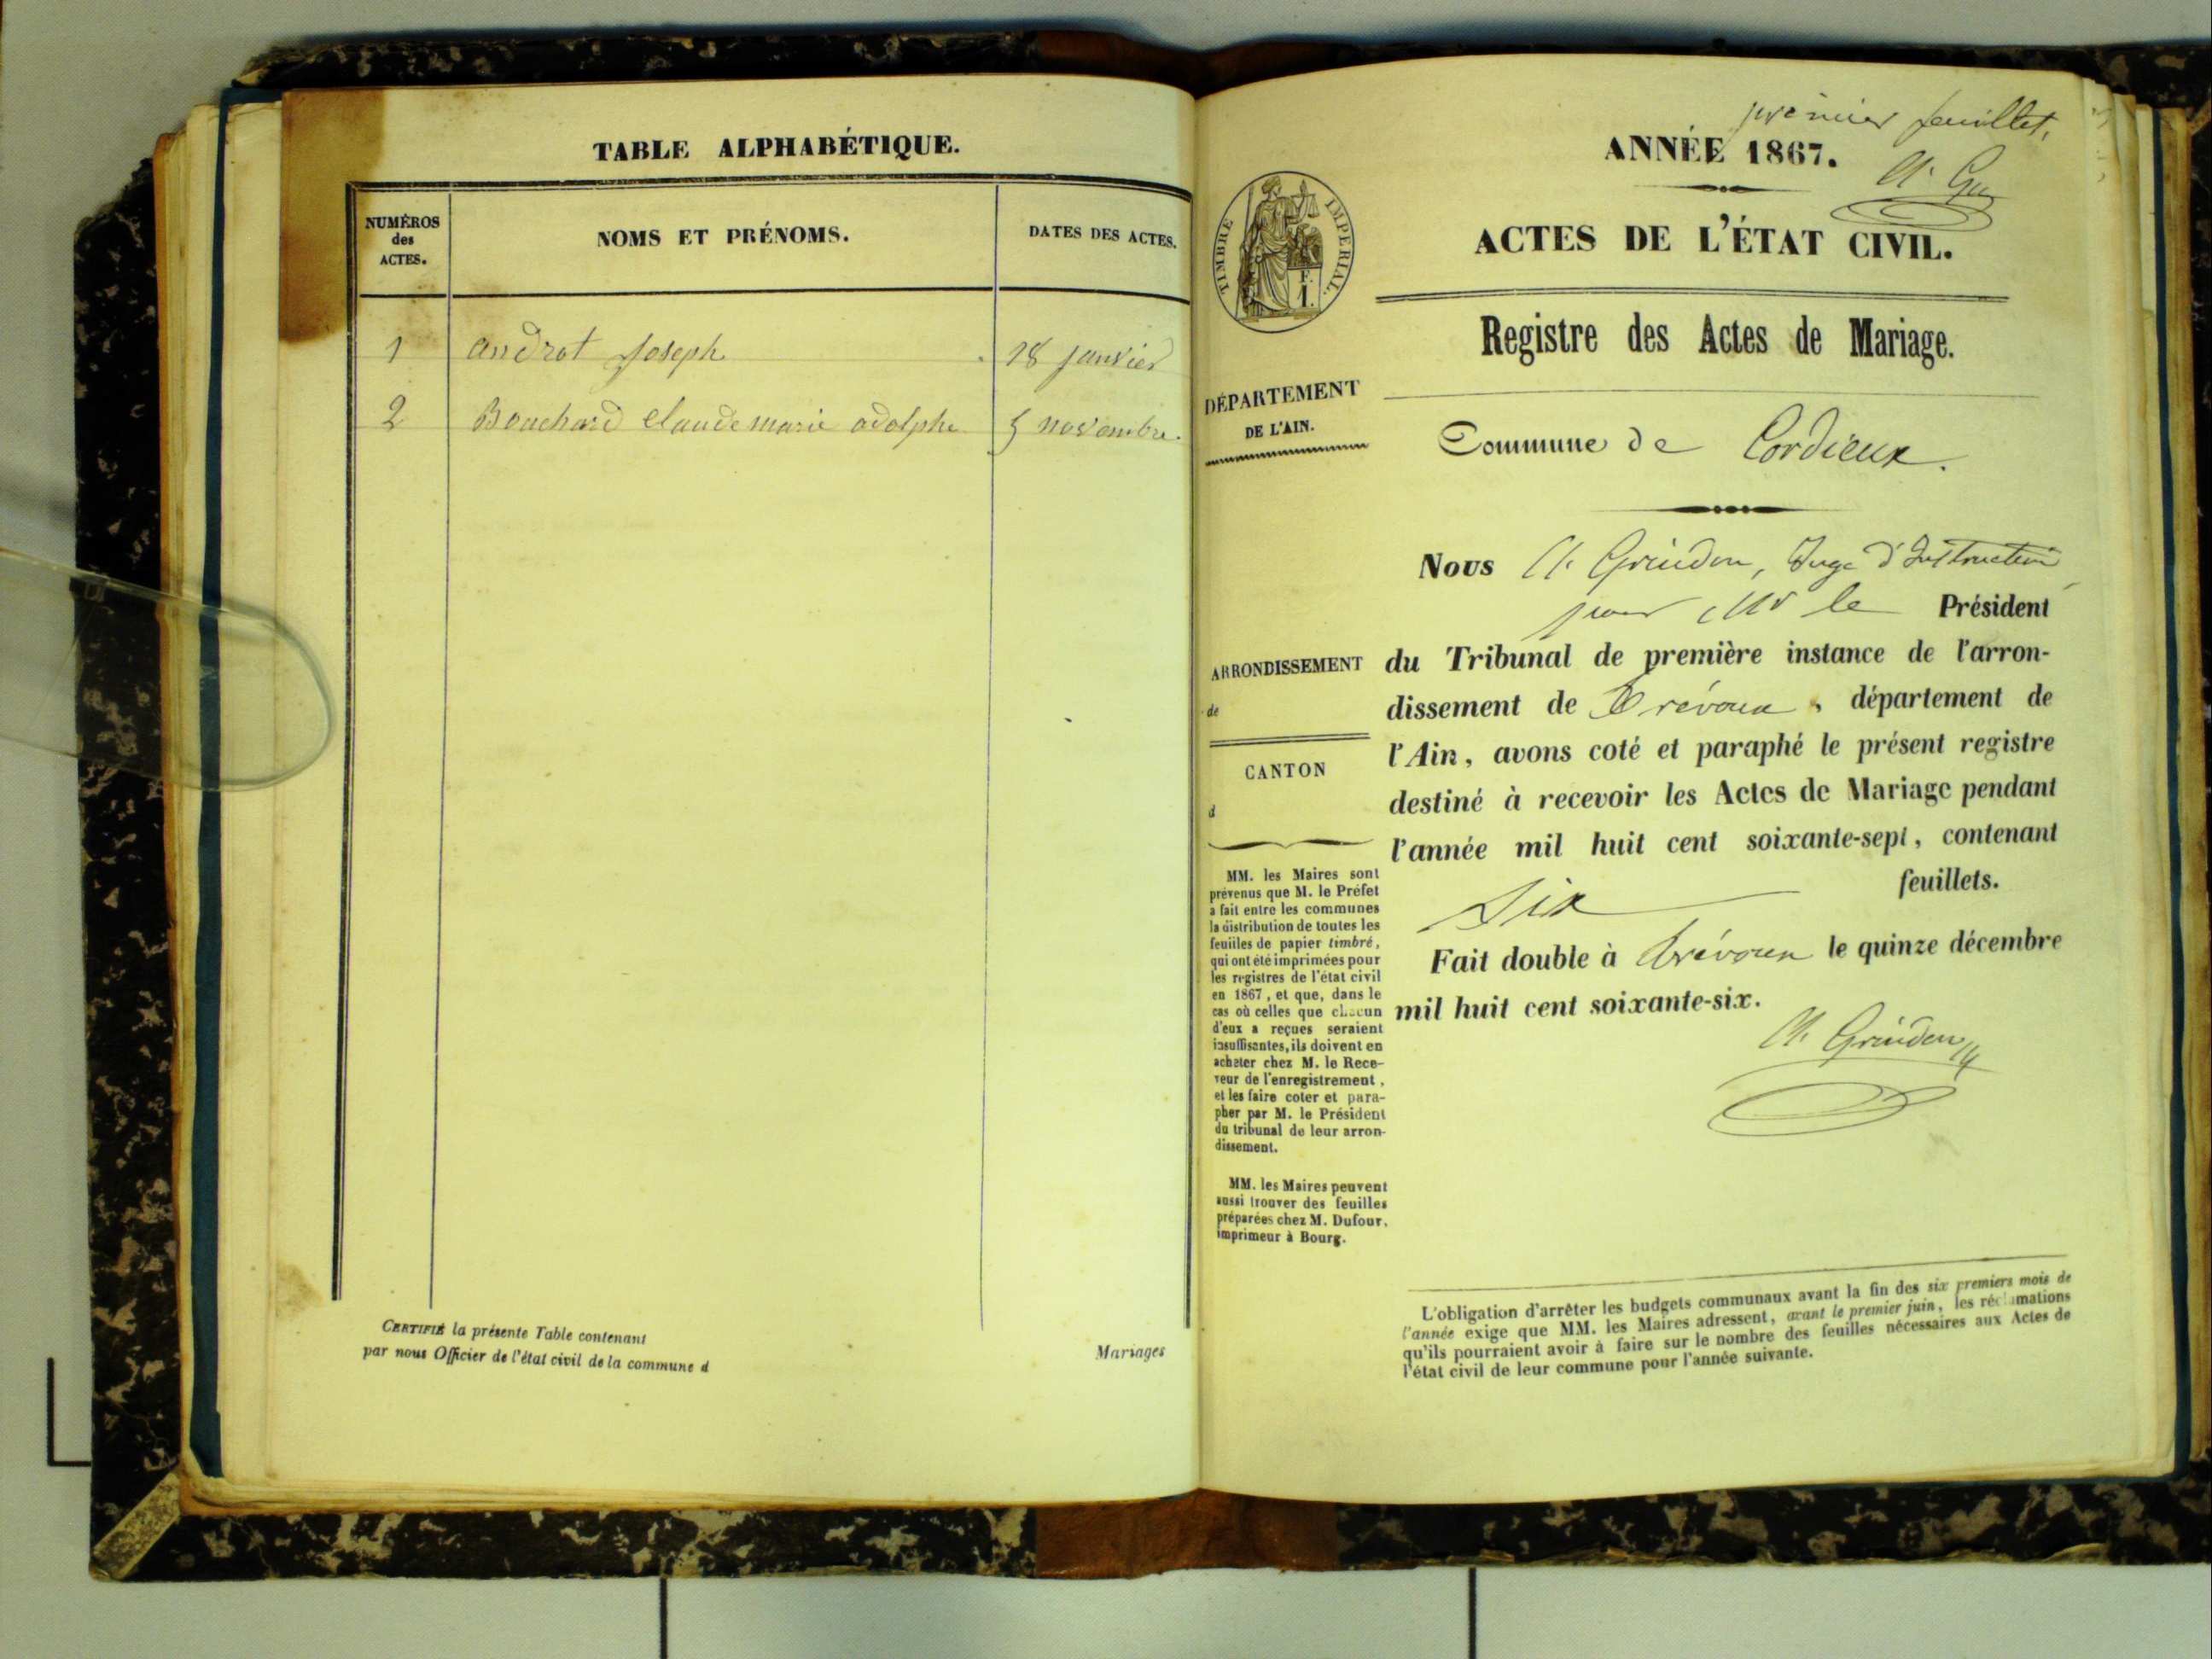 TABLE ALPHABÉTIQUE.
NUMÉROS
des
ACTES.
NOMS ET PRÉNOMS.
DATES DES ACTES.
1 Androt Joseph 18 janvier
2 Bouchard Claude marie adolphe 5 novembre.
CERTIFIÉ la présente Table contenant Mariages
par nous Officier de l'état civil de la commune d
premier feuillet.
ANNÉE 1867.
ACTES DE L'ÉTAT CIVIL.
TIMBRE IMPERIAL.
Registre des Actes de Mariage.
DÉPARTEMENT
DE L'AIN.
Commune de Cordieux.
Nous Grindon, Juge d'Instruction
pour Mr le Président
du Tribunal de première instance de l'arron-
dissement de Trévoux, département de
l'Ain, avons coté et paraphé le présent registre
destiné à recevoir les Actes de Mariage pendant
l'année mil huit cent soixante-sept, contenant
Six feuillets.
Fait double à Trévoux le quinze décembre
mil huit cent soixante-six.
Grindon
ARRONDISSEMENT
de
CANTON
d
MM. les Maires sont
prévenus que M. le Préfet
a fait entre les communes
la distribution de toutes les
feuilles de papier timbré,
qui ont été imprimées pour
les registres de l'état civil
en 1867, et que, dans le
cas où celles que chacun
d'eux a reçues seraient
insuffisantes, ils doivent en
acheter chez M. le Rece-
veur de l'enregistrement,
et les faire coter et para-
pher par M. le Président
du tribunal de leur arron-
dissement.
MM. les Maires peuvent
aussi trouver des feuilles
préparées chez M. Dufour,
imprimeur à Bourg.
L'obligation d'arrêter les budgets communaux avant la fin des six premiers mois de
l'année exige que MM. les Maires adressent, avant le premier juin, les réclamations
qu'ils pourraient avoir à faire sur le nombre des feuilles nécessaires aux Actes de
l'état civil de leur commune pour l'année suivante.